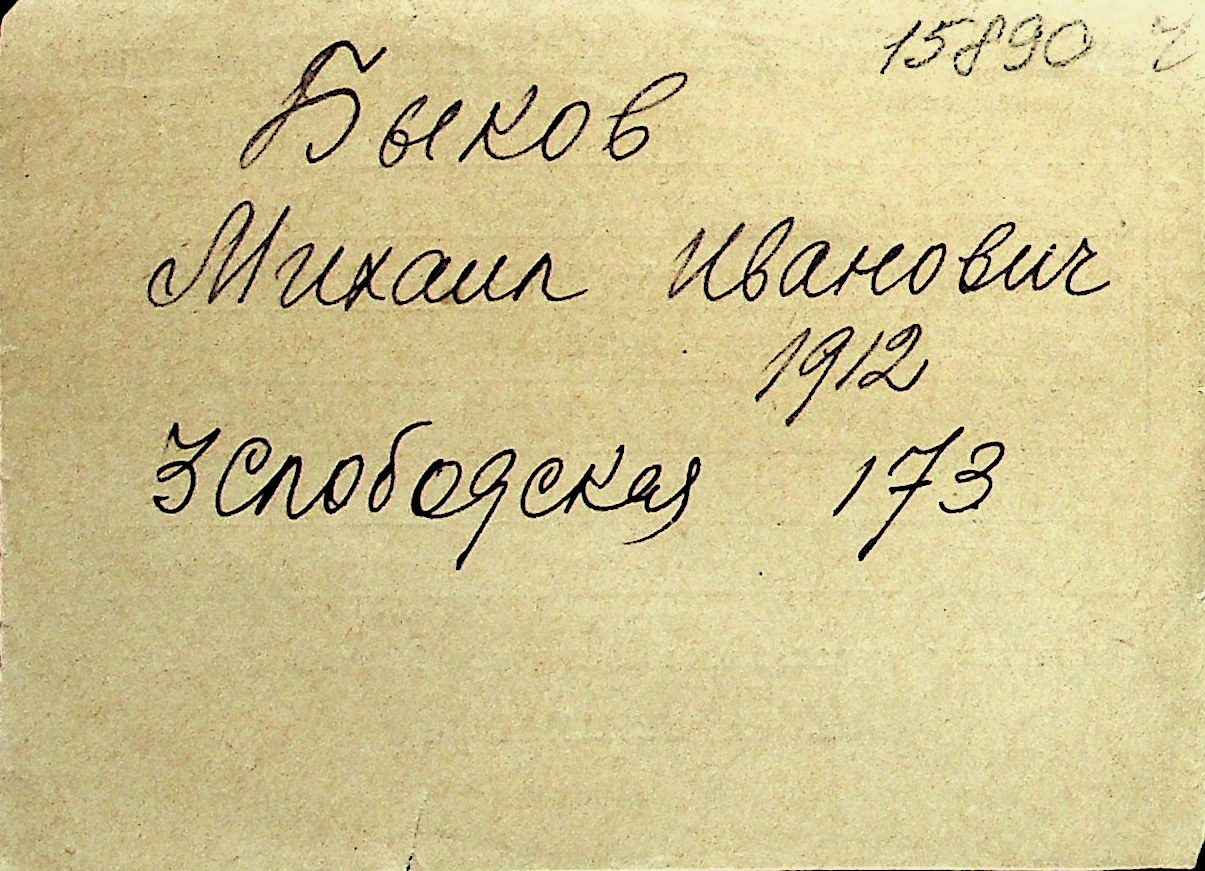 15890 ч
Быков
Михаил Иванович
1912
3 Слободская 173